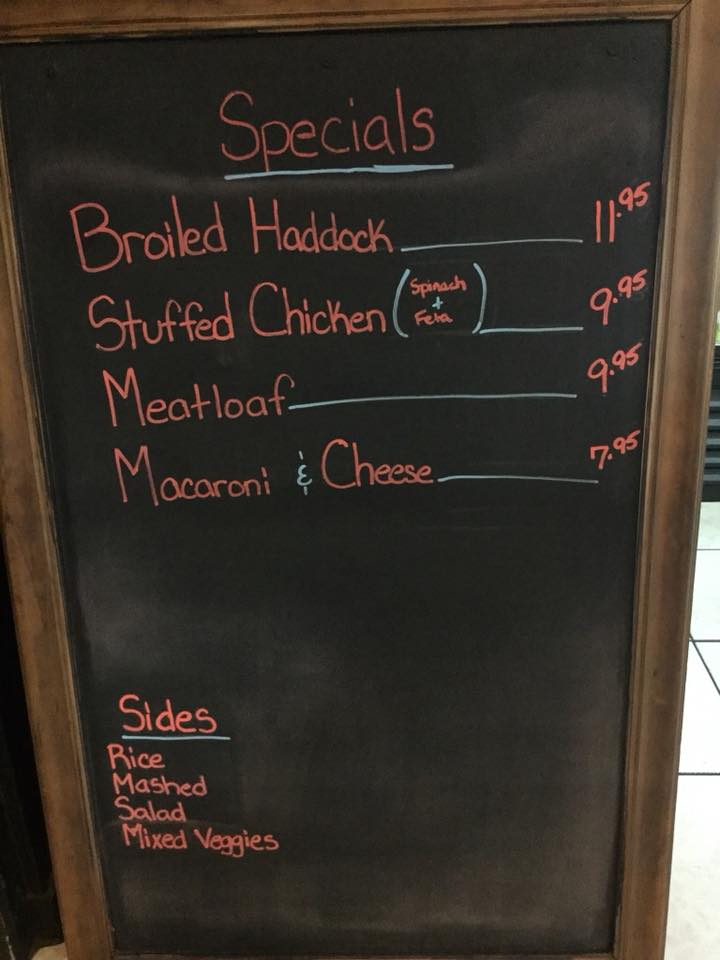 Specials
Broiled Haddock 11.95
Stuffed Chicken (Spinach + Feta) 9.95
Meatloaf 9.95
Macaroni & Cheese 7.95
Sides
Rice
Mashed
Salad
Mixed Veggies